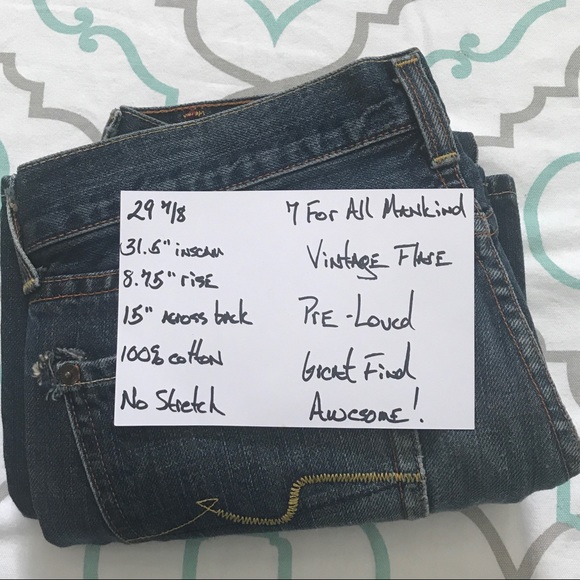 29 7/8
31.5" inseam
8.75" rise
15" Across back
100% cotton
No Stretch
7 For All Mankind
Vintage Flare
Pre-Loved
Great Find
Awesome!